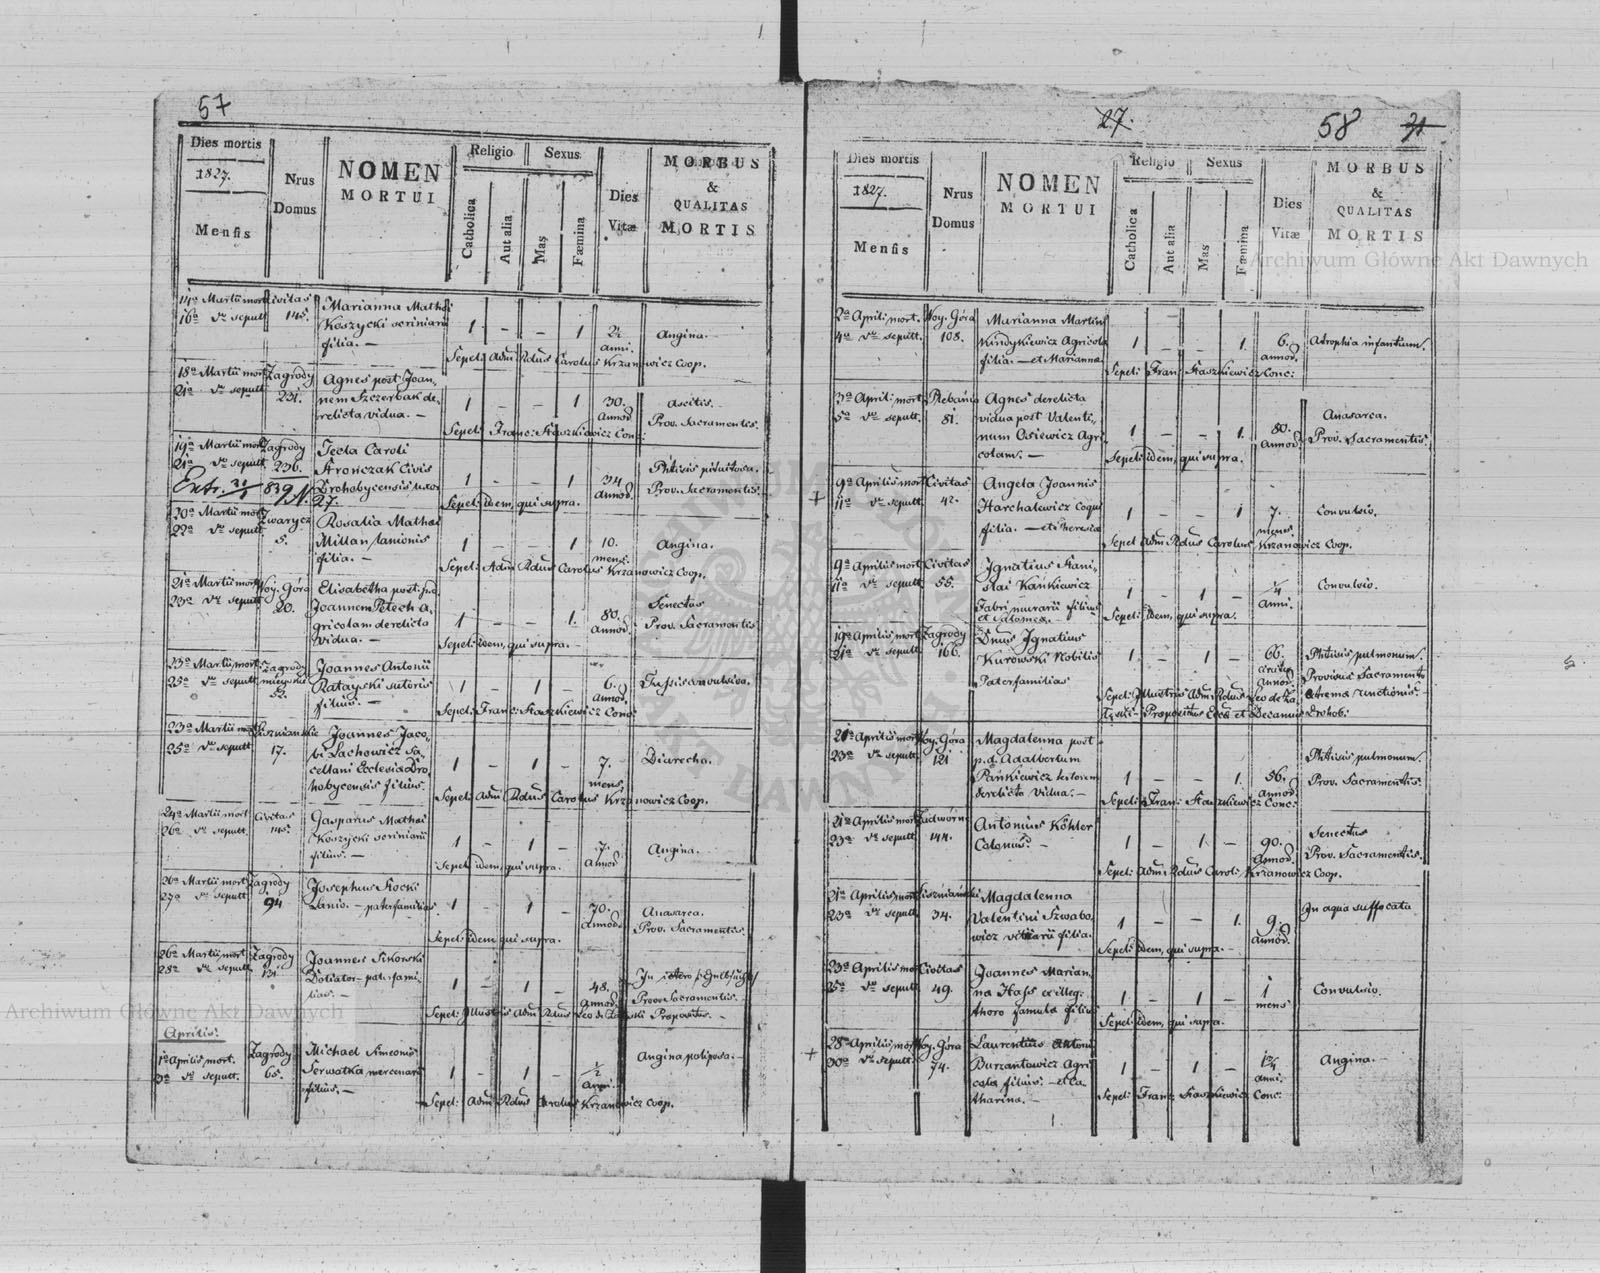 57
Dies mortis
1827.
Mensis
Nrus
Domus
NOMEN
MORTUI
Religio
Catholica
Aut alia
Sexus
Mas
Fæmina
Dies
Vitæ
MORBUS
&
QUALITAS
MORTIS
14a Martii mort. Civitas Marianna Mathei
16a do sepult. 145. Koszycki scriniarii 1 – – 1 2½ Angina.
filia. — anni.
Sepel: Adm Rdus Carolus Krzanowicz Coop.
18a Martii mort. Zagrody Agnes post Joan-
21a do sepult. 231. nem Szczerbak de- 1 – – 1 30. Ascitis.
relicta vidua. — Annor. Prov. Sacramentis.
Sepel: Franc: Staszkiewicz Conc:
19a Martii mort. Zagrody Tecla Caroli
21a do sepult. 236. Strończak Civis Phtisis pituitosa.
Extr. 839 Drohobycensis uxor 1 – – 1 34. Annor. Prov. Sacramentis.
27. Sepel: idem, qui supra.
20a Martii mort. Zwarycz Rosalia Mathei
22a do sepult. 5. Millan lanionis 1 – – 1 10. Angina.
filia. — mens.
Sepel: Adm Rdus Carolus Krzanowicz Coop.
21a Martii mort. Woy. Góra Elisabetha post p.d.
23a do sepult. 20. Joannem Petech a- Senectus
gricolam derelicta 1 – – 1. 80. Annor. Prov. Sacramentis.
vidua. — Sepel: idem, qui supra. —
23a Martii mort. Zagrody Joannes Antonii
25a do sepult. 52. Ratayski sutoris 1 – 1 – 6. Tussis convulsiva.
filius. — Annor.
Sepel: Franc: Staszkiewicz Conc:
23a Martii mort. Liszniańskie Joannes Jaco-
25a do sepult. 17. bi Lachowicz Sa-
cellani Ecclesiæ Dro- 1 – 1 – 7. Diarecha.
hobycensis filius. mens.
Sepel: Adm Rdus Carolus Krzanowicz Coop.
24a Martii mort. Civitas Gasparus Mathei
26a do sepult. 145. Koszycki scriniarii 1 – 1 – 7. Angina.
filius. — Annor.
Sepel: idem, qui supra.
26a Martii mort. Zagrody Josephus Kocki
27a do sepult. 94 Lanio. — paterfamilias. 1 – 1 – 70. Anasarca.
Annor. Prov. Sacramentis.
Sepel: idem qui supra.
26a Martii mort. Zagrody Joannes Sikorski
28a do sepult. 131. Doliator – paterfami- 1 – 1 – 48. In ictero
lias. — Annor. Prov. Sacramentis.
Sepel: Illustris Adm Rdus Leo de Præpositus. —
Aprilis.
1a Aprilis mort. Zagrody Michael Simeonis
3a do sepult. 65. Serwatka mercenarii 1 – 1 – ½ Angina poliposa. —
filius. — Anni.
Sepel: Adm Rdus Carolus Krzanowicz Coop.
27.
58
31
Dies mortis
1827.
Mensis
Nrus
Domus
NOMEN
MORTUI
Religio
Catholica
Aut alia
Sexus
Mas
Fæmina
Dies
Vitæ
MORBUS
&
QUALITAS
MORTIS
2a April: mort. Woy. Góra Marianna Martini
4a do sepult. 108. Kindykiewicz Agricola 1 – – 1. 6. Atrophia infantium.
filia. — et Marianna. annor.
Sepel: Fran: Staszkiewicz Conc:
3a April: mort. Plebania Agnes derelicta
5a do sepult. 81. vidua post Valenti- Anasarca.
num Osiewicz Agri- 1 – – 1. 80. Annor. Prov. Sacramentis.
colam. — Sepel: idem, qui supra.
+ 9a Aprilis mort. Civitas Angela Joannis
11a do sepult. 42. Harchalewicz Coqui 1 – – 1 7. Convulsio.
filia. — et Theresia mens.
Sepel: Adm Rdus Carolus Krzanowicz Coop.
9a Aprilis mort. Civitas Ignatius Stani-
11a do sepult. 55. slai Kańkiewicz 1 – 1 – ¼ Convulsio.
Fabri murarii filius Anni.
et Salomea. — Sepel: idem, qui supra.
19a Aprilis mort. Zagrody Dnus Ignatius
21a do sepult. 166. Kurowski Nobilis 1 – 1 – 66. Phtisis pulmonum.
Paterfamilias circiter Annor. Provisus Sacramento
Sepel: Illustris Adm Rdus Leo de extremæ Unctionis. —
Præpositus Eccl: et Decanus Drohob:
21a Aprilis mort. Woy. Góra Magdalenna post
23a do sepult. 121 p.d. Adalbertum Phtisis pulmonum.
Pańkiewicz textorem 1 – – 1. 56. Annor. Prov. Sacramentis.
derelicta vidua. — Sepel: Fran: Staszkiewicz Conc:
21a Aprilis mort. Zadwórn: Antonius Köhler
23a do sepult. 144. Colonus. — 1 – 1 – 90. Senectus
Annor. Prov. Sacramentis.
Sepel: Adm Rdus Carol: Krzanowicz Coop.
21a Aprilis mort. Liszniańskie Magdalenna
23a do sepult. 34. Valentini Szwabo- 1 – – 1. 9. In aqua suffocata
wicz vitriarii filia. Annor.
Sepel: idem, qui supra. —
23a Aprilis mort. Civitas Joannes Marian-
25a do sepult. 49. na Hass ex illeg. 1 – 1 – 1 Convulsio.
thoro famula filius mens.
Sepel: idem, qui supra.
+ 28a Aprilis mort. Woy. Góra Laurentius Antoni
30a do sepult. 74. Burzantowicz Agri 1 – 1 – 1¼ Angina. —
cola filius. — et Ca anni.
tharina. — Sepel: Franc: Staszkiewicz Conc:
Archiwum Główne Akt Dawnych
Archiwum Główne Akt Dawnych
ARCHIWUM GŁÓWNE AKT DAWNYCH